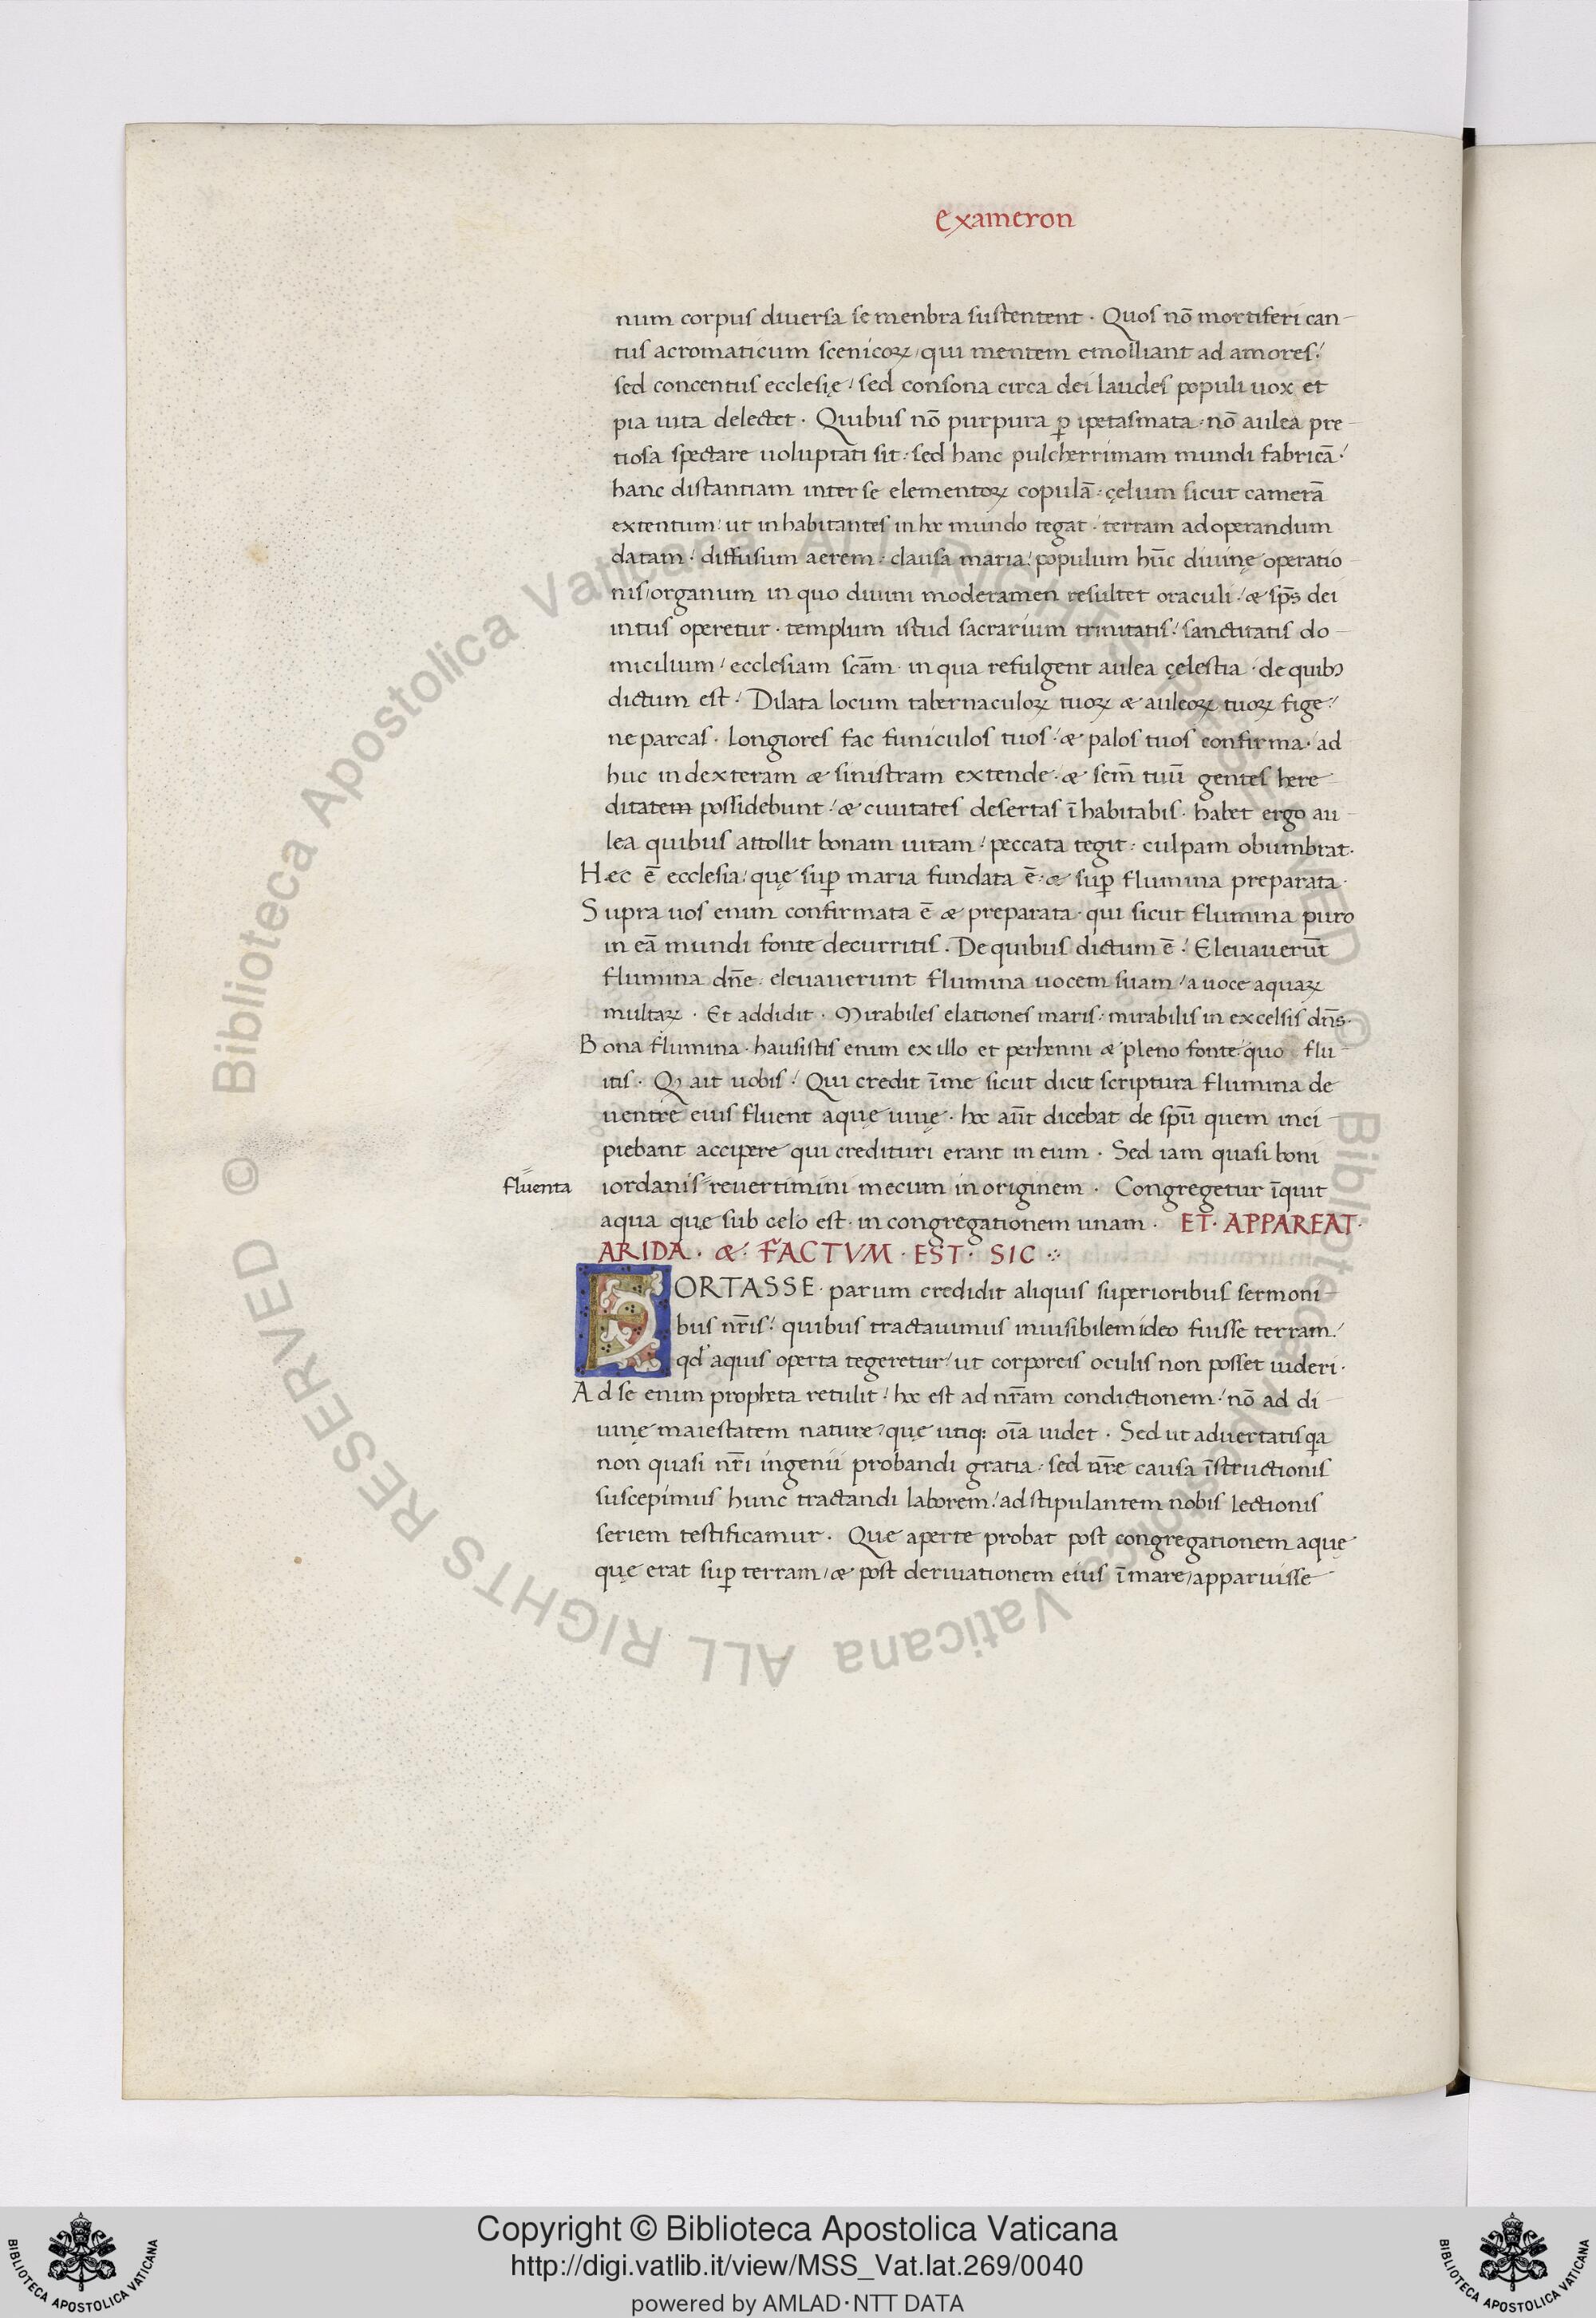 Exameron
num corpus diuersa se menbra sustentent · Quos nō mortiferi can-
tus acromaticum scenicoꝝ/ qui mentem emolliant ad amores:/
sed concentus ecclesię:/ sed consona circa dei laudes populi uox et
pia uita delectet · Quibus nō purpura ꝑ ipetasmata · nō aulea pre-
tiosa spectare uoluptati sit: sed hanc pulcherrimam mundi fabricā:/
hanc distantiam inter se elementoꝝ copulā: cęlum sicut camerā
extentum: ut inhabitantes in hoc mundo tegat: terram ad operandum
datam: diffusum aerem: clausa maria: populum hūc diuinę operatio-
nis/ organum in quo diuini moderamen resultet oraculi:/ & sp̄s dei
intus operetur · templum istud sacrarium trinitatis:/ sanctitatis do-
micilium/ ecclesiam scām · in qua refulgent aulea cęlestia · de quibꝫ
dictum est:/ Dilata locum tabernaculoꝝ tuoꝝ & auleoꝝ tuoꝝ fige:/
ne parcas · Longiores fac funiculos tuos:/ & palos tuos confirma · ad
huc in dexteram & sinistram extende · & sem̄ tuū gentes here-
ditatem possidebunt:/ & ciuitates desertas ī habitabis · habet ergo au-
lea quibus attollit bonam uitam:/ peccata tegit: culpam obumbrat·
Hæc ē ecclesia: quę suꝑ maria fundata ē: & suꝑ flumina preparata·
Supra uos enim confirmata ē & preparata · qui sicut flumina puro
in eā mundi fonte decurritis · De quibus dictum ē:/ Eleuauerūt
flumina dn̄e: eleuauerunt flumina uocem suam:/ a uoce aquaꝝ
multaꝝ · Et addidit · Mirabiles elationes maris: mirabilis in excelsis dn̄s·
Bona flumina · hausistis enim ex illo et perhenni & pleno fonte: quo flu-
itis · Q ait uobis:/ Qui credit ī me sicut dicit scriptura flumina de
uentre eius fluent aquę uiuę · hoc aūt dicebat de spū quem inci-
piebant accipere qui credituri erant in eum · Sed iam quasi boni
fluenta iordanis reuertimini mecum in originem · Congregetur īquit
aqua quę sub celo est · in congregationem unam · ET· APPAREAT·
ARIDA · & · FACTVM · EST · SIC ·:·
FORTASSE · parum credidit aliquis superioribus sermoni-
bus nr̄is:/ quibus tractauimus inuisibilem ideo fuisse terram:/
qd̓ aquis operta tegeretur:/ ut corporeis oculis non posset uideri·
Ad se enim propheta retulit:/ hoc est ad nr̄am condictionem:/ nō ad di-
uinę maiestatem nature/ quę utiqꝫ oīa uidet · Sed ut aduertatis qa
non quasi nr̄i ingenii probandi gratia · sed ur̄e causa īstructionis
suscepimus hunc tractandi laborem:/ adstipulantem nobis lectionis
seriem testificamur · Que aperte probat post congregationem aquę
quę erat suꝑ terram/ & post deriuationem eius ī mare/ apparuisse
Copyright © Biblioteca Apostolica Vaticana
http://digi.vatlib.it/view/MSS_Vat.lat.269/0040
powered by AMLAD·NTT DATA
BIBLIOTECA APOSTOLICA VATICANA
BIBLIOTECA APOSTOLICA VATICANA
© Biblioteca Apostolica Vaticana ALL RIGHTS RESERVED © Biblioteca Apostolica Vaticana ALL RIGHTS RESERVED